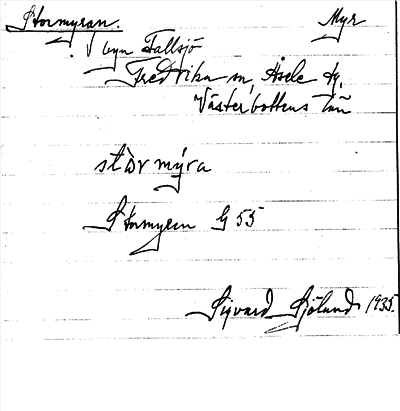 Stormyran. Myr
I byn Tallsjö
Fredrika sn, Åsele tg,
Västerbottens län
stòr mýra
Stormyren G 55
Sigvard Sjölund 1935.